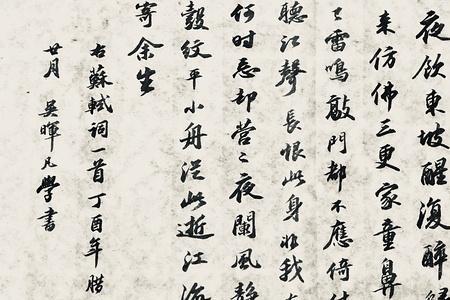 夜飲東坡醒復醉歸
来仿佛三更家童鼻
已雷鳴敲門都不應倚杖
聽江聲長恨此身非我有
何时忘却營々夜闌風静
縠紋平小舟從此逝江海
寄余生
右蘇軾詞一首丁酉年腊
廿月 吳暉凡學書